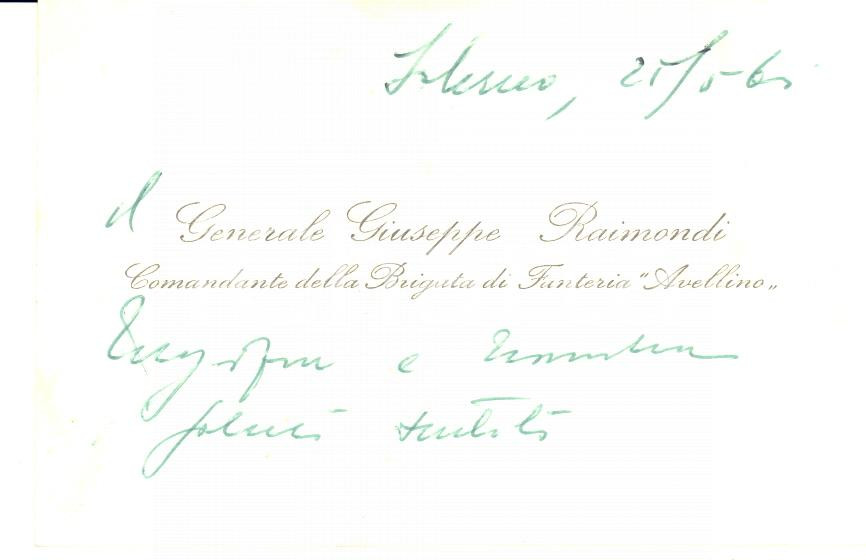 Salerno, 25/5-6
Il
Generale Giuseppe Raimondi
Comandante della Brigata di Fanteria "Avellino„
Ringrazia e ricambia
saluti